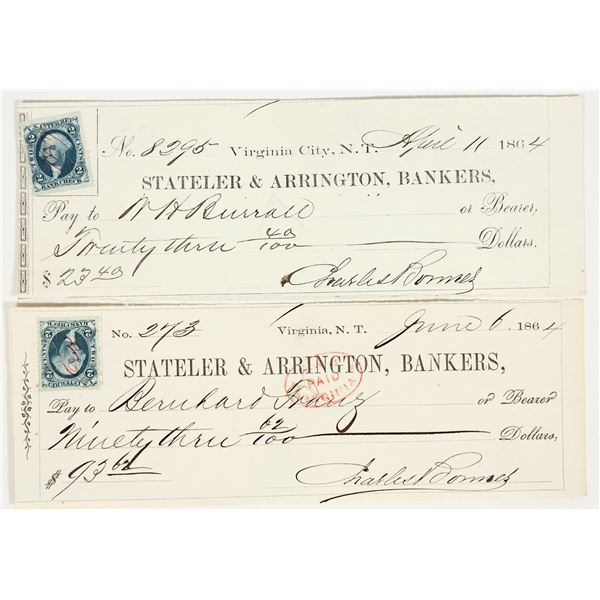 U.S. INTER. REV.
2 2
TWO CENTS
2 2
BANK CHECK
No. 8295 Virginia City, N. T. April 11 1864
STATELER & ARRINGTON, BANKERS,
Pay to W H Burrall or Bearer,
Twenty three 40/100 Dollars.
$ 23 40 Charles Bonner
No. 273 Virginia, N. T. June 6 1864
STATELER & ARRINGTON, BANKERS,
PAID
VIRGINIA
Pay to Bernhard or Bearer
Ninety three 62/100 Dollars,
$ 93 62 Charles Bonner